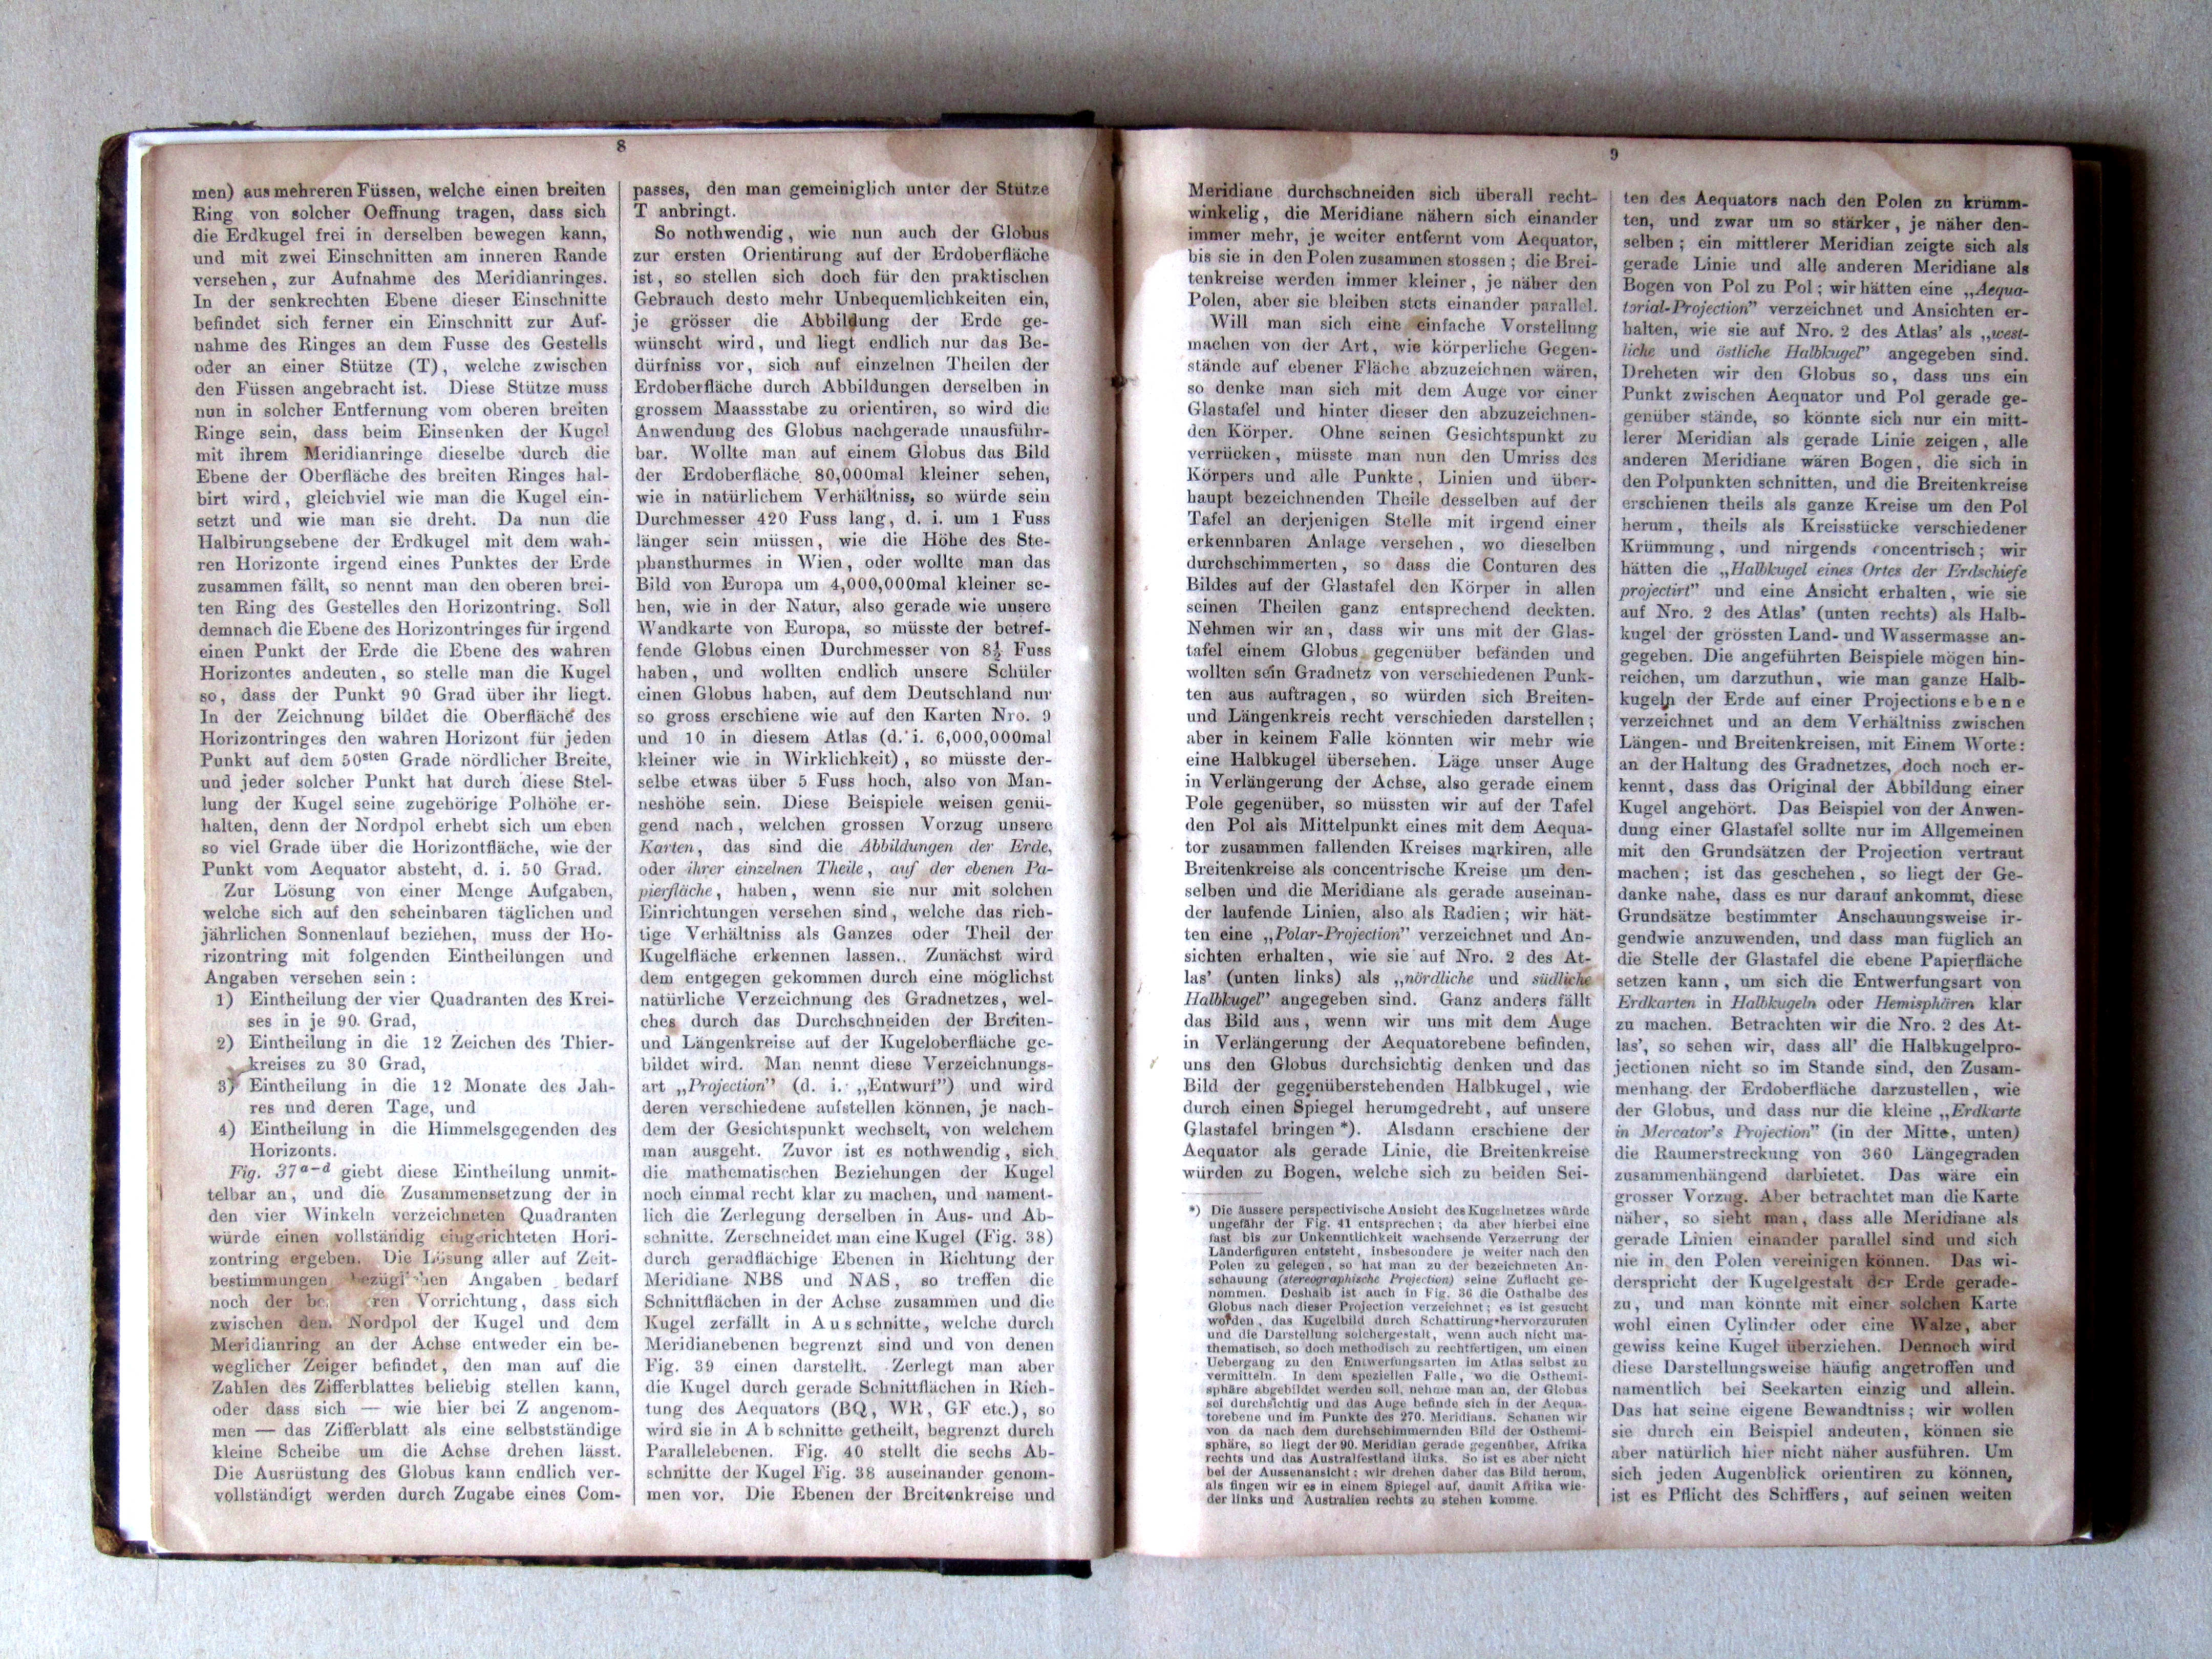 8
men) aus mehreren Füssen, welche einen breiten
Ring von solcher Oeffnung tragen, dass sich
die Erdkugel frei in derselben bewegen kann,
und mit zwei Einschnitten am inneren Rande
versehen, zur Aufnahme des Meridianringes.
In der senkrechten Ebene dieser Einschnitte
befindet sich ferner ein Einschnitt zur Auf-
nahme des Ringes an dem Fusse des Gestells
oder an einer Stütze (T), welche zwischen
den Füssen angebracht ist. Diese Stütze muss
nun in solcher Entfernung vom oberen breiten
Ringe sein, dass beim Einsenken der Kugel
mit ihrem Meridianringe dieselbe durch die
Ebene der Oberfläche des breiten Ringes hal-
birt wird, gleichviel wie man die Kugel ein-
setzt und wie man sie dreht. Da nun die
Halbirungsebene der Erdkugel mit dem wah-
ren Horizonte irgend eines Punktes der Erde
zusammen fällt, so nennt man den oberen brei-
ten Ring des Gestelles den Horizontring. Soll
demnach die Ebene des Horizontringes für irgend
einen Punkt der Erde die Ebene des wahren
Horizontes andeuten, so stelle man die Kugel
so, dass der Punkt 90 Grad über ihr liegt.
In der Zeichnung bildet die Oberfläche des
Horizontringes den wahren Horizont für jeden
Punkt auf dem 50sten Grade nördlicher Breite,
und jeder solcher Punkt hat durch diese Stel-
lung der Kugel seine zugehörige Polhöhe er-
halten, denn der Nordpol erhebt sich um eben
so viel Grade über die Horizontfläche, wie der
Punkt vom Aequator absteht, d. i. 50 Grad.
Zur Lösung von einer Menge Aufgaben,
welche sich auf den scheinbaren täglichen und
jährlichen Sonnenlauf beziehen, muss der Ho-
rizontring mit folgenden Eintheilungen und
Angaben versehen sein:
1) Eintheilung der vier Quadranten des Krei-
ses in je 90. Grad,
2) Eintheilung in die 12 Zeichen des Thier-
kreises zu 30 Grad,
3) Eintheilung in die 12 Monate des Jah-
res und deren Tage, und
4) Eintheilung in die Himmelsgegenden des
Horizonts.
Fig. 37a-d giebt diese Eintheilung unmit-
telbar an, und die Zusammensetzung der in
den vier Winkeln verzeichneten Quadranten
würde einen vollständig eingerichteten Hori-
zontring ergeben. Die Lösung aller auf Zeit-
bestimmungen Angaben bedarf
noch der Vorrichtung, dass sich
zwischen dem Nordpol der Kugel und dem
Meridianring an der Achse entweder ein be-
weglicher Zeiger befindet, den man auf die
Zahlen des Zifferblattes beliebig stellen kann,
oder dass sich — wie hier bei Z angenom-
men — das Zifferblatt als eine selbstständige
kleine Scheibe um die Achse drehen lässt.
Die Ausrüstung des Globus kann endlich ver-
vollständigt werden durch Zugabe eines Com-
passes, den man gemeiniglich unter der Stütze
T anbringt.
So nothwendig, wie nun auch der Globus
zur ersten Orientirung auf der Erdoberfläche
ist, so stellen sich doch für den praktischen
Gebrauch desto mehr Unbequemlichkeiten ein,
je grösser die Abbildung der Erde ge-
wünscht wird, und liegt endlich nur das Be-
dürfniss vor, sich auf einzelnen Theilen der
Erdoberfläche durch Abbildungen derselben in
grossem Maassstabe zu orientiren, so wird die
Anwendung des Globus nachgerade unausführ-
bar. Wollte man auf einem Globus das Bild
der Erdoberfläche 80,000mal kleiner sehen,
wie in natürlichem Verhältniss, so würde sein
Durchmesser 420 Fuss lang, d. i. um 1 Fuss
länger sein müssen, wie die Höhe des Ste-
phansthurmes in Wien, oder wollte man das
Bild von Europa um 4,000,000mal kleiner se-
hen, wie in der Natur, also gerade wie unsere
Wandkarte von Europa, so müsste der betref-
fende Globus einen Durchmesser von 8½ Fuss
haben, und wollten endlich unsere Schüler
einen Globus haben, auf dem Deutschland nur
so gross erschiene wie auf den Karten Nro. 9
und 10 in diesem Atlas (d. i. 6,000,000mal
kleiner wie in Wirklichkeit), so müsste der-
selbe etwas über 5 Fuss hoch, also von Man-
neshöhe sein. Diese Beispiele weisen genü-
gend nach, welchen grossen Vorzug unsere
Karten, das sind die Abbildungen der Erde,
oder ihrer einzelnen Theile, auf der ebenen Pa-
pierfläche, haben, wenn sie nur mit solchen
Einrichtungen versehen sind, welche das rich-
tige Verhältniss als Ganzes oder Theil der
Kugelfläche erkennen lassen. Zunächst wird
dem entgegen gekommen durch eine möglichst
natürliche Verzeichnung des Gradnetzes, wel-
ches durch das Durchschneiden der Breiten-
und Längenkreise auf der Kugeloberfläche ge-
bildet wird. Man nennt diese Verzeichnungs-
art „Projection” (d. i. „Entwurf”) und wird
deren verschiedene aufstellen können, je nach-
dem der Gesichtspunkt wechselt, von welchem
man ausgeht. Zuvor ist es nothwendig, sich
die mathematischen Beziehungen der Kugel
noch einmal recht klar zu machen, und nament-
lich die Zerlegung derselben in Aus- und Ab-
schnitte. Zerschneidet man eine Kugel (Fig. 38)
durch geradflächige Ebenen in Richtung der
Meridiane NBS und NAS, so treffen die
Schnittflächen in der Achse zusammen und die
Kugel zerfällt in Ausschnitte, welche durch
Meridianebenen begrenzt sind und von denen
Fig. 39 einen darstellt. Zerlegt man aber
die Kugel durch gerade Schnittflächen in Rich-
tung des Aequators (BQ, WR, GF etc.), so
wird sie in Abschnitte getheilt, begrenzt durch
Parallelebenen. Fig. 40 stellt die sechs Ab-
schnitte der Kugel Fig. 38 auseinander genom-
men vor. Die Ebenen der Breitenkreise und
9
Meridiane durchschneiden sich überall recht-
winkelig, die Meridiane nähern sich einander
immer mehr, je weiter entfernt vom Aequator,
bis sie in den Polen zusammen stossen; die Brei-
tenkreise werden immer kleiner, je näher den
Polen, aber sie bleiben stets einander parallel.
Will man sich eine einfache Vorstellung
machen von der Art, wie körperliche Gegen-
stände auf ebener Fläche abzuzeichnen wären,
so denke man sich mit dem Auge vor einer
Glastafel und hinter dieser den abzuzeichnen-
den Körper. Ohne seinen Gesichtspunkt zu
verrücken, müsste man nun den Umriss des
Körpers und alle Punkte, Linien und über-
haupt bezeichnenden Theile desselben auf der
Tafel an derjenigen Stelle mit irgend einer
erkennbaren Anlage versehen, wo dieselben
durchschimmerten, so dass die Conturen des
Bildes auf der Glastafel den Körper in allen
seinen Theilen ganz entsprechend deckten.
Nehmen wir an, dass wir uns mit der Glas-
tafel einem Globus gegenüber befänden und
wollten sein Gradnetz von verschiedenen Punk-
ten aus auftragen, so würden sich Breiten-
und Längenkreis recht verschieden darstellen;
aber in keinem Falle könnten wir mehr wie
eine Halbkugel übersehen. Läge unser Auge
in Verlängerung der Achse, also gerade einem
Pole gegenüber, so müssten wir auf der Tafel
den Pol als Mittelpunkt eines mit dem Aequa-
tor zusammen fallenden Kreises markiren, alle
Breitenkreise als concentrische Kreise um den-
selben und die Meridiane als gerade auseinan-
der laufende Linien, also als Radien; wir hät-
ten eine „Polar-Projection” verzeichnet und An-
sichten erhalten, wie sie auf Nro. 2 des At-
las' (unten links) als „nördliche und südliche
Halbkugel” angegeben sind. Ganz anders fällt
das Bild aus, wenn wir uns mit dem Auge
in Verlängerung der Aequatorebene befinden,
uns den Globus durchsichtig denken und das
Bild der gegenüberstehenden Halbkugel, wie
durch einen Spiegel herumgedreht, auf unsere
Glastafel bringen *). Alsdann erschiene der
Aequator als gerade Linie, die Breitenkreise
würden zu Bogen, welche sich zu beiden Sei-
*) Die äussere perspectivische Ansicht des Kugelnetzes würde
ungefähr der Fig. 41 entsprechen; da aber hierbei eine
fast bis zur Unkenntlichkeit wachsende Verzerrung der
Länderfiguren entsteht, insbesondere je weiter nach den
Polen zu gelegen, so hat man zu der bezeichneten An-
schauung (stereographische Projection) seine Zuflucht ge-
nommen. Deshalb ist auch in Fig. 36 die Osthalbe des
Globus nach dieser Projection verzeichnet; es ist gesucht
worden, das Kugelbild durch Schattirung hervorzurufen
und die Darstellung solchergestalt, wenn auch nicht ma-
thematisch, so doch methodisch zu rechtfertigen, um einen
Uebergang zu den Entwerfungsarten im Atlas selbst zu
vermitteln. In dem speziellen Falle, wo die Osthemi-
sphäre abgebildet werden soll, nehme man an, der Globus
sei durchsichtig und das Auge befinde sich in der Aequa-
torebene und im Punkte des 270. Meridians. Schauen wir
von da nach dem durchschimmernden Bild der Osthemi-
sphäre, so liegt der 90. Meridian gerade gegenüber, Afrika
rechts und das Australfestland links. So ist es aber nicht
bei der Aussenansicht; wir drehen daher das Bild herum,
als fingen wir es in einem Spiegel auf, damit Afrika wie-
der links und Australien rechts zu stehen komme.
ten des Aequators nach den Polen zu krümm-
ten, und zwar um so stärker, je näher den-
selben; ein mittlerer Meridian zeigte sich als
gerade Linie und alle anderen Meridiane als
Bogen von Pol zu Pol; wir hätten eine „Aequa-
torial-Projection” verzeichnet und Ansichten er-
halten, wie sie auf Nro. 2 des Atlas' als „west-
liche und östliche Halbkugel” angegeben sind.
Dreheten wir den Globus so, dass uns ein
Punkt zwischen Aequator und Pol gerade ge-
genüber stände, so könnte sich nur ein mitt-
lerer Meridian als gerade Linie zeigen, alle
anderen Meridiane wären Bogen, die sich in
den Polpunkten schnitten, und die Breitenkreise
erschienen theils als ganze Kreise um den Pol
herum, theils als Kreisstücke verschiedener
Krümmung, und nirgends concentrisch; wir
hätten die „Halbkugel eines Ortes der Erdschiefe
projectirt” und eine Ansicht erhalten, wie sie
auf Nro. 2 des Atlas' (unten rechts) als Halb-
kugel der grössten Land- und Wassermasse an-
gegeben. Die angeführten Beispiele mögen hin-
reichen, um darzuthun, wie man ganze Halb-
kugeln der Erde auf einer Projectionsebene
verzeichnet und an dem Verhältniss zwischen
Längen- und Breitenkreisen, mit Einem Worte:
an der Haltung des Gradnetzes, doch noch er-
kennt, dass das Original der Abbildung einer
Kugel angehört. Das Beispiel von der Anwen-
dung einer Glastafel sollte nur im Allgemeinen
mit den Grundsätzen der Projection vertraut
machen; ist das geschehen, so liegt der Ge-
danke nahe, dass es nur darauf ankommt, diese
Grundsätze bestimmter Anschauungsweise ir-
gendwie anzuwenden, und dass man füglich an
die Stelle der Glastafel die ebene Papierfläche
setzen kann, um sich die Entwerfungsart von
Erdkarten in Halbkugeln oder Hemisphären klar
zu machen. Betrachten wir die Nro. 2 des At-
las', so sehen wir, dass all' die Halbkugelpro-
jectionen nicht so im Stande sind, den Zusam-
menhang der Erdoberfläche darzustellen, wie
der Globus, und dass nur die kleine „Erdkarte
in Mercator's Projection” (in der Mitte, unten)
die Raumerstreckung von 360 Längegraden
zusammenhängend darbietet. Das wäre ein
grosser Vorzug. Aber betrachtet man die Karte
näher, so sieht man, dass alle Meridiane als
gerade Linien einander parallel sind und sich
nie in den Polen vereinigen können. Das wi-
derspricht der Kugelgestalt der Erde gerade-
zu, und man könnte mit einer solchen Karte
wohl einen Cylinder oder eine Walze, aber
gewiss keine Kugel überziehen. Dennoch wird
diese Darstellungsweise häufig angetroffen und
namentlich bei Seekarten einzig und allein.
Das hat seine eigene Bewandtniss; wir wollen
sie durch ein Beispiel andeuten, können sie
aber natürlich hier nicht näher ausführen. Um
sich jeden Augenblick orientiren zu können,
ist es Pflicht des Schiffers, auf seinen weiten